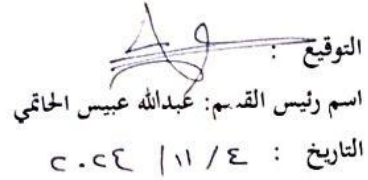 التوقيع :
اسم رئيس القسم: عبدالله عبيس الحاتمي
التاريخ : ٤ / ١١ / ٢٠٢٤